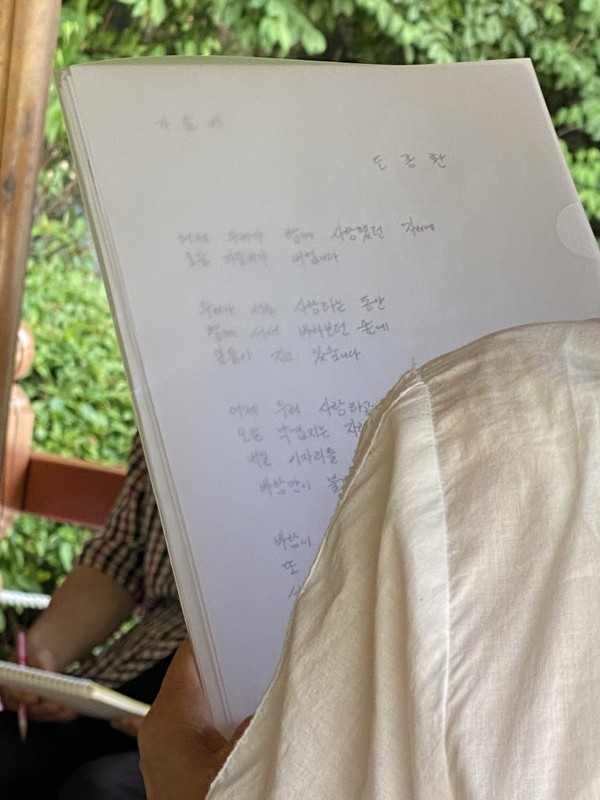 가을비
도종환
어제 우리가 함께 사랑했던 자리에
오늘 가을비가 내립니다
우리가 서로 사랑하는 동안
함께 서서 바라보던 숲에
잎들이 지고 있습니다
어제 우리 사랑하고
오늘 낙엽지는 자리
내일 이자리를
바람만이 불
바람이
또